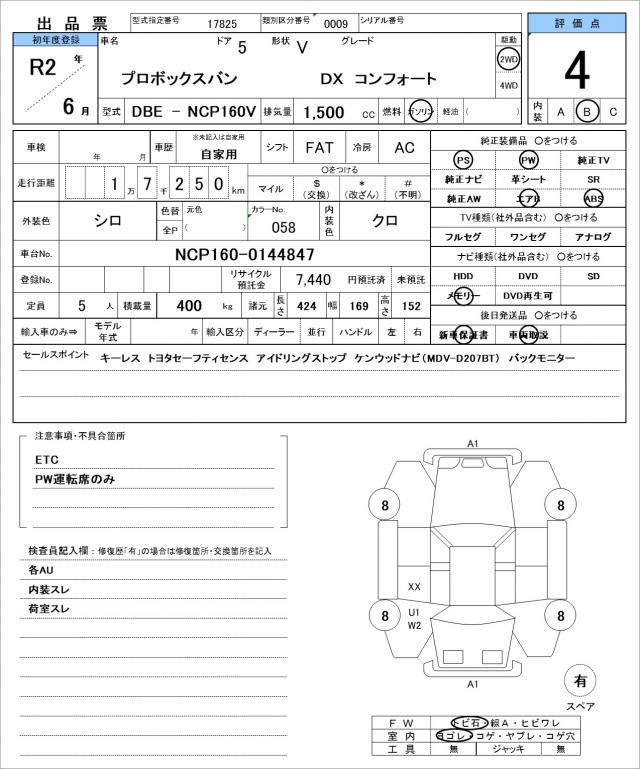 出品票 型式指定番号 17825 類別区分番号 0009 シリアル番号
評価点
初年度登録 車名 ドア 5 形状 V グレード 駆動
R2 年 プロボックスバン DX コンフォート 2WD
4WD
4
6 月 型式 DBE － NCP160V 排気量 1,500 cc 燃料 ガソリン 軽油 ( ) 内装 A B C
車検 年 月 車歴 ※未記入は自家用 自家用 シフト FAT 冷房 AC
走行距離 1 万 7 千 2 5 0 km 〇をつける
マイル $ (交換) * (改ざん) # (不明)
外装色 シロ 色替 全P 元色 ( ) カラーNo. 058 内装色 クロ
車台No. NCP160-0144847
登録No. リサイクル預託金 7,440 円預託済 未預託
定員 5 人 積載量 400 kg 諸元 長さ 424 幅 169 高さ 152
輸入車のみ⇒ モデル年式 年 輸入区分 ディーラー 並行 ハンドル 左 右
純正装備品 〇をつける
PS PW 純正TV
純正ナビ 革シート SR
純正AW エアB ABS
TV種類(社外品含む) 〇をつける
フルセグ ワンセグ アナログ
ナビ種類(社外品含む) 〇をつける
HDD DVD SD
メモリー DVD再生可
後日発送品 〇をつける
新車保証書 車両取説
セールスポイント キーレス トヨタセーフティセンス アイドリングストップ ケンウッドナビ(MDV-D207BT) バックモニター
注意事項・不具合箇所
ETC
PW運転席のみ
検査員記入欄：修復歴「有」の場合は修復箇所・交換箇所を記入
各AU
内装スレ
荷室スレ
A1
8 8
XX
U1
W2
8 8
A1
有
スペア
FW トビ石・線A・ヒビワレ
室内 ヨゴレ・コゲ・ヤブレ・コゲ穴
工具 無 ジャッキ 無